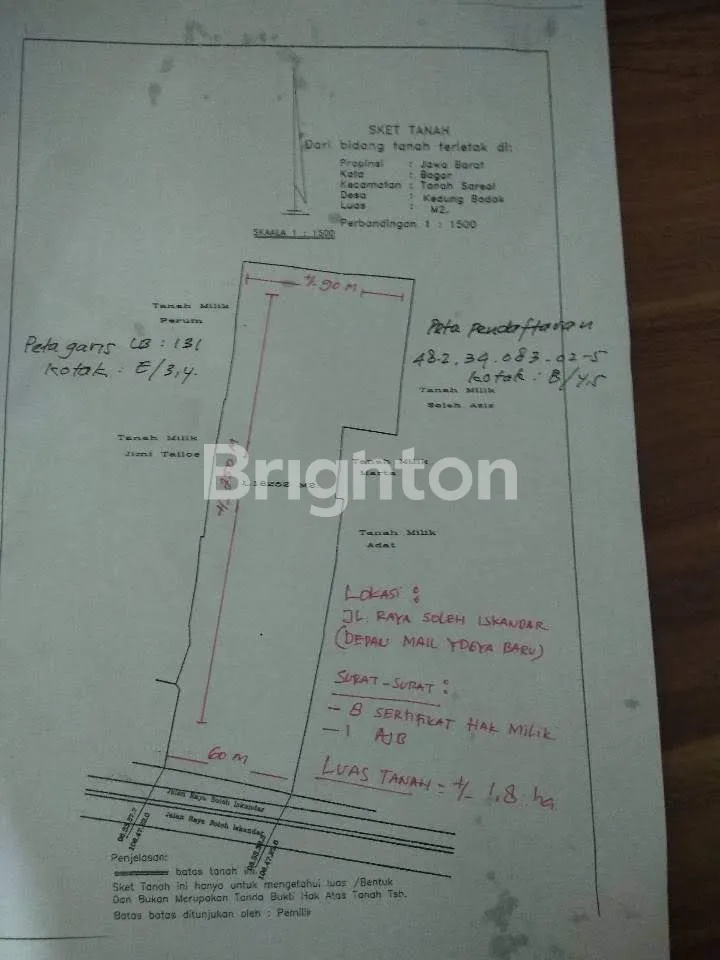 SKET TANAH
Dari bidang tanah terletak di:
Propinsi : Jawa Barat
Kota : Bogor
Kecamatan : Tanah Sareal
Desa : Kedung Badak
Luas : M2.
Perbandingan 1 : 1500
SKAALA 1 : 1500
+/- 90 m
Tanah Milik
Perum
Peta garis LB : 131
Kotak : E/3,4.
Peta pendaftaran
48-2.34.083.02-5
Kotak : B/4,5
Tanah Milik
Soleh Aziz
Tanah Milik
Jimi Tailoe
Brighton
Tanah Milik
Marta
L 18252 M2
Tanah Milik
Adat
LOKASI :
JL. RAYA SOLEH ISKANDAR
(DEPAN MALL YOGYA BARU)
SURAT-SURAT :
- 8 SERTIFIKAT HAK MILIK
- 1 AJB
LUAS TANAH = +/- 1,8 ha
60 m
Jalan Raya Soleh Iskandar
Jalan Raya Soleh Iskandar
Penjelasan:
batas tanah
Sket Tanah ini hanya untuk mengetahui luas /Bentuk
Dan Bukan Merupakan Tanda Bukti Hak Atas Tanah Tsb.
Batas batas ditunjukan oleh : Pemilik